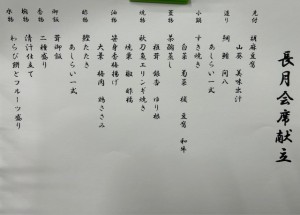 長月会席献立
先付 胡麻豆腐
山葵 美味出汁
造り 鮪 鯛 間八
あしらい一式
小鍋 すき焼き
白菜 菊菜 豆腐 和牛
蒸物 茶碗蒸し
椎茸 銀杏 ゆり根
焼物 秋刀魚エリンギ焼き
酢橘
油物 笹身香梅揚げ
大葉 梅肉 鶏ささみ
酢物 鰹たたき
あしらい一式
御飯 茸御飯
香物 二種盛り
椀物 清汁仕立て
水物 わらび餅とフルーツ盛り